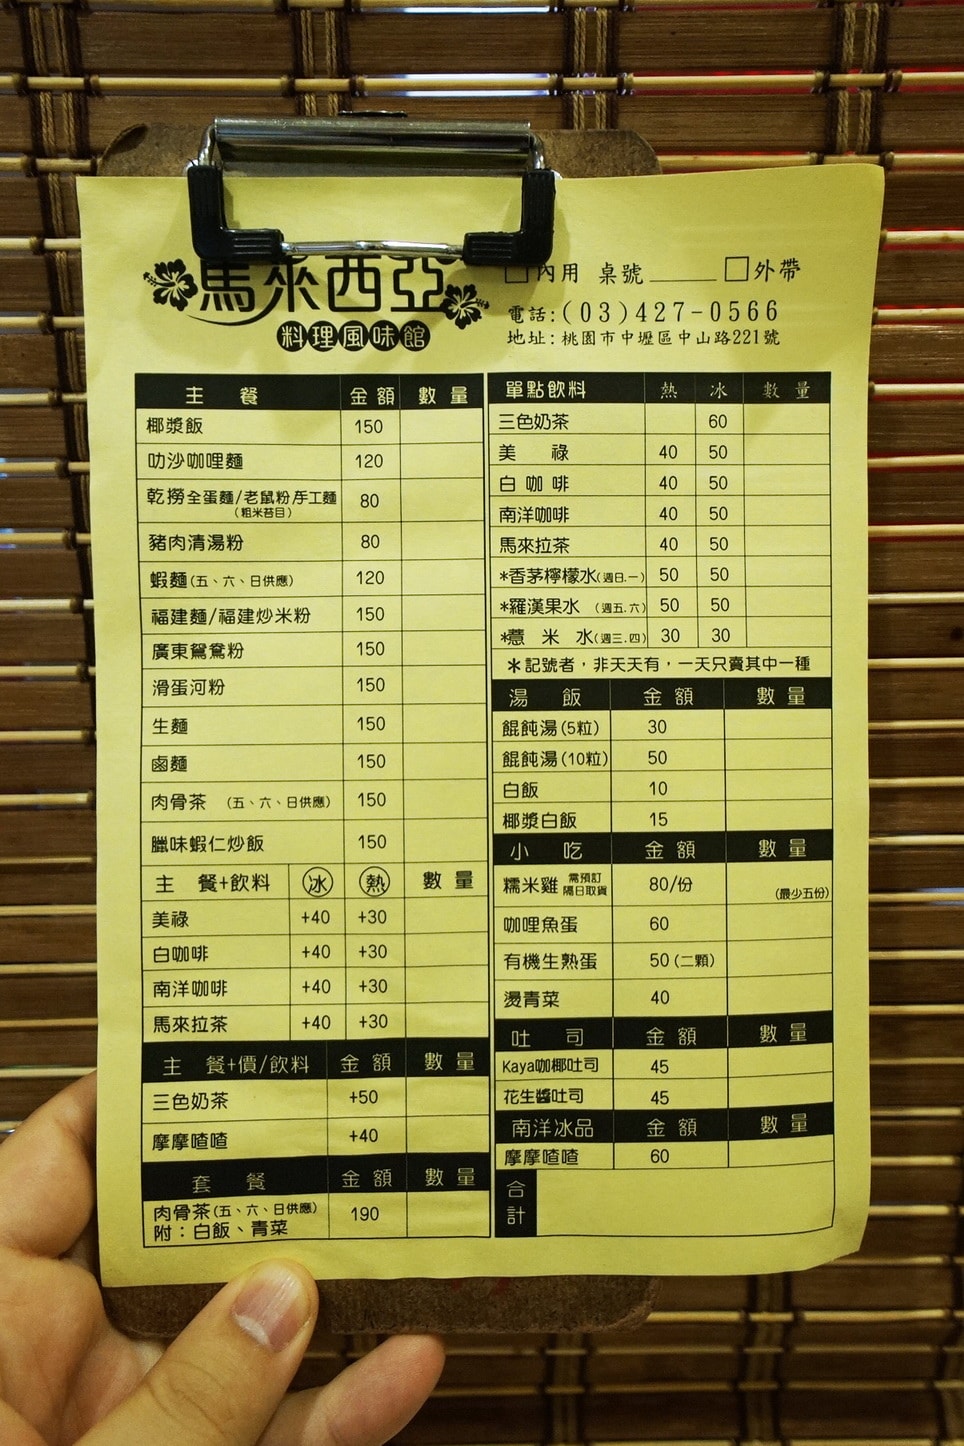 馬來西亞
料理風味館
□內用 桌號______ □外帶
電話:(03)427-0566
地址: 桃園市中壢區中山路221號
主 餐 金 額 數 量
椰漿飯 150
叻沙咖哩麵 120
乾撈全蛋麵/老鼠粉/手工麵 80
(粗米苔目)
豬肉清湯粉 80
蝦麵(五、六、日供應) 120
福建麵/福建炒米粉 150
廣東鴛鴦粉 150
滑蛋河粉 150
生麵 150
鹵麵 150
肉骨茶 (五、六、日供應) 150
臘味蝦仁炒飯 150
主 餐+飲料 冰 熱 數 量
美祿 +40 +30
白咖啡 +40 +30
南洋咖啡 +40 +30
馬來拉茶 +40 +30
主 餐+價/飲料 金 額 數 量
三色奶茶 +50
摩摩喳喳 +40
套 餐 金 額 數 量
肉骨茶(五、六、日供應) 190
附：白飯、青菜
單點飲料 熱 冰 數 量
三色奶茶 60
美 祿 40 50
白 咖 啡 40 50
南洋咖啡 40 50
馬來拉茶 40 50
*香茅檸檬水(週日.一) 50 50
*羅漢果水 (週五.六) 50 50
*薏 米 水(週三.四) 30 30
*記號者，非天天有，一天只賣其中一種
湯 飯 金 額 數 量
餛飩湯(5粒) 30
餛飩湯(10粒) 50
白飯 10
椰漿白飯 15
小 吃 金 額 數 量
糯米雞 需預訂 隔日取貨 80/份 (最少五份)
咖哩魚蛋 60
有機生熟蛋 50 (二顆)
燙青菜 40
吐 司 金 額 數 量
Kaya咖椰吐司 45
花生醬吐司 45
南洋冰品 金 額 數 量
摩摩喳喳 60
合計